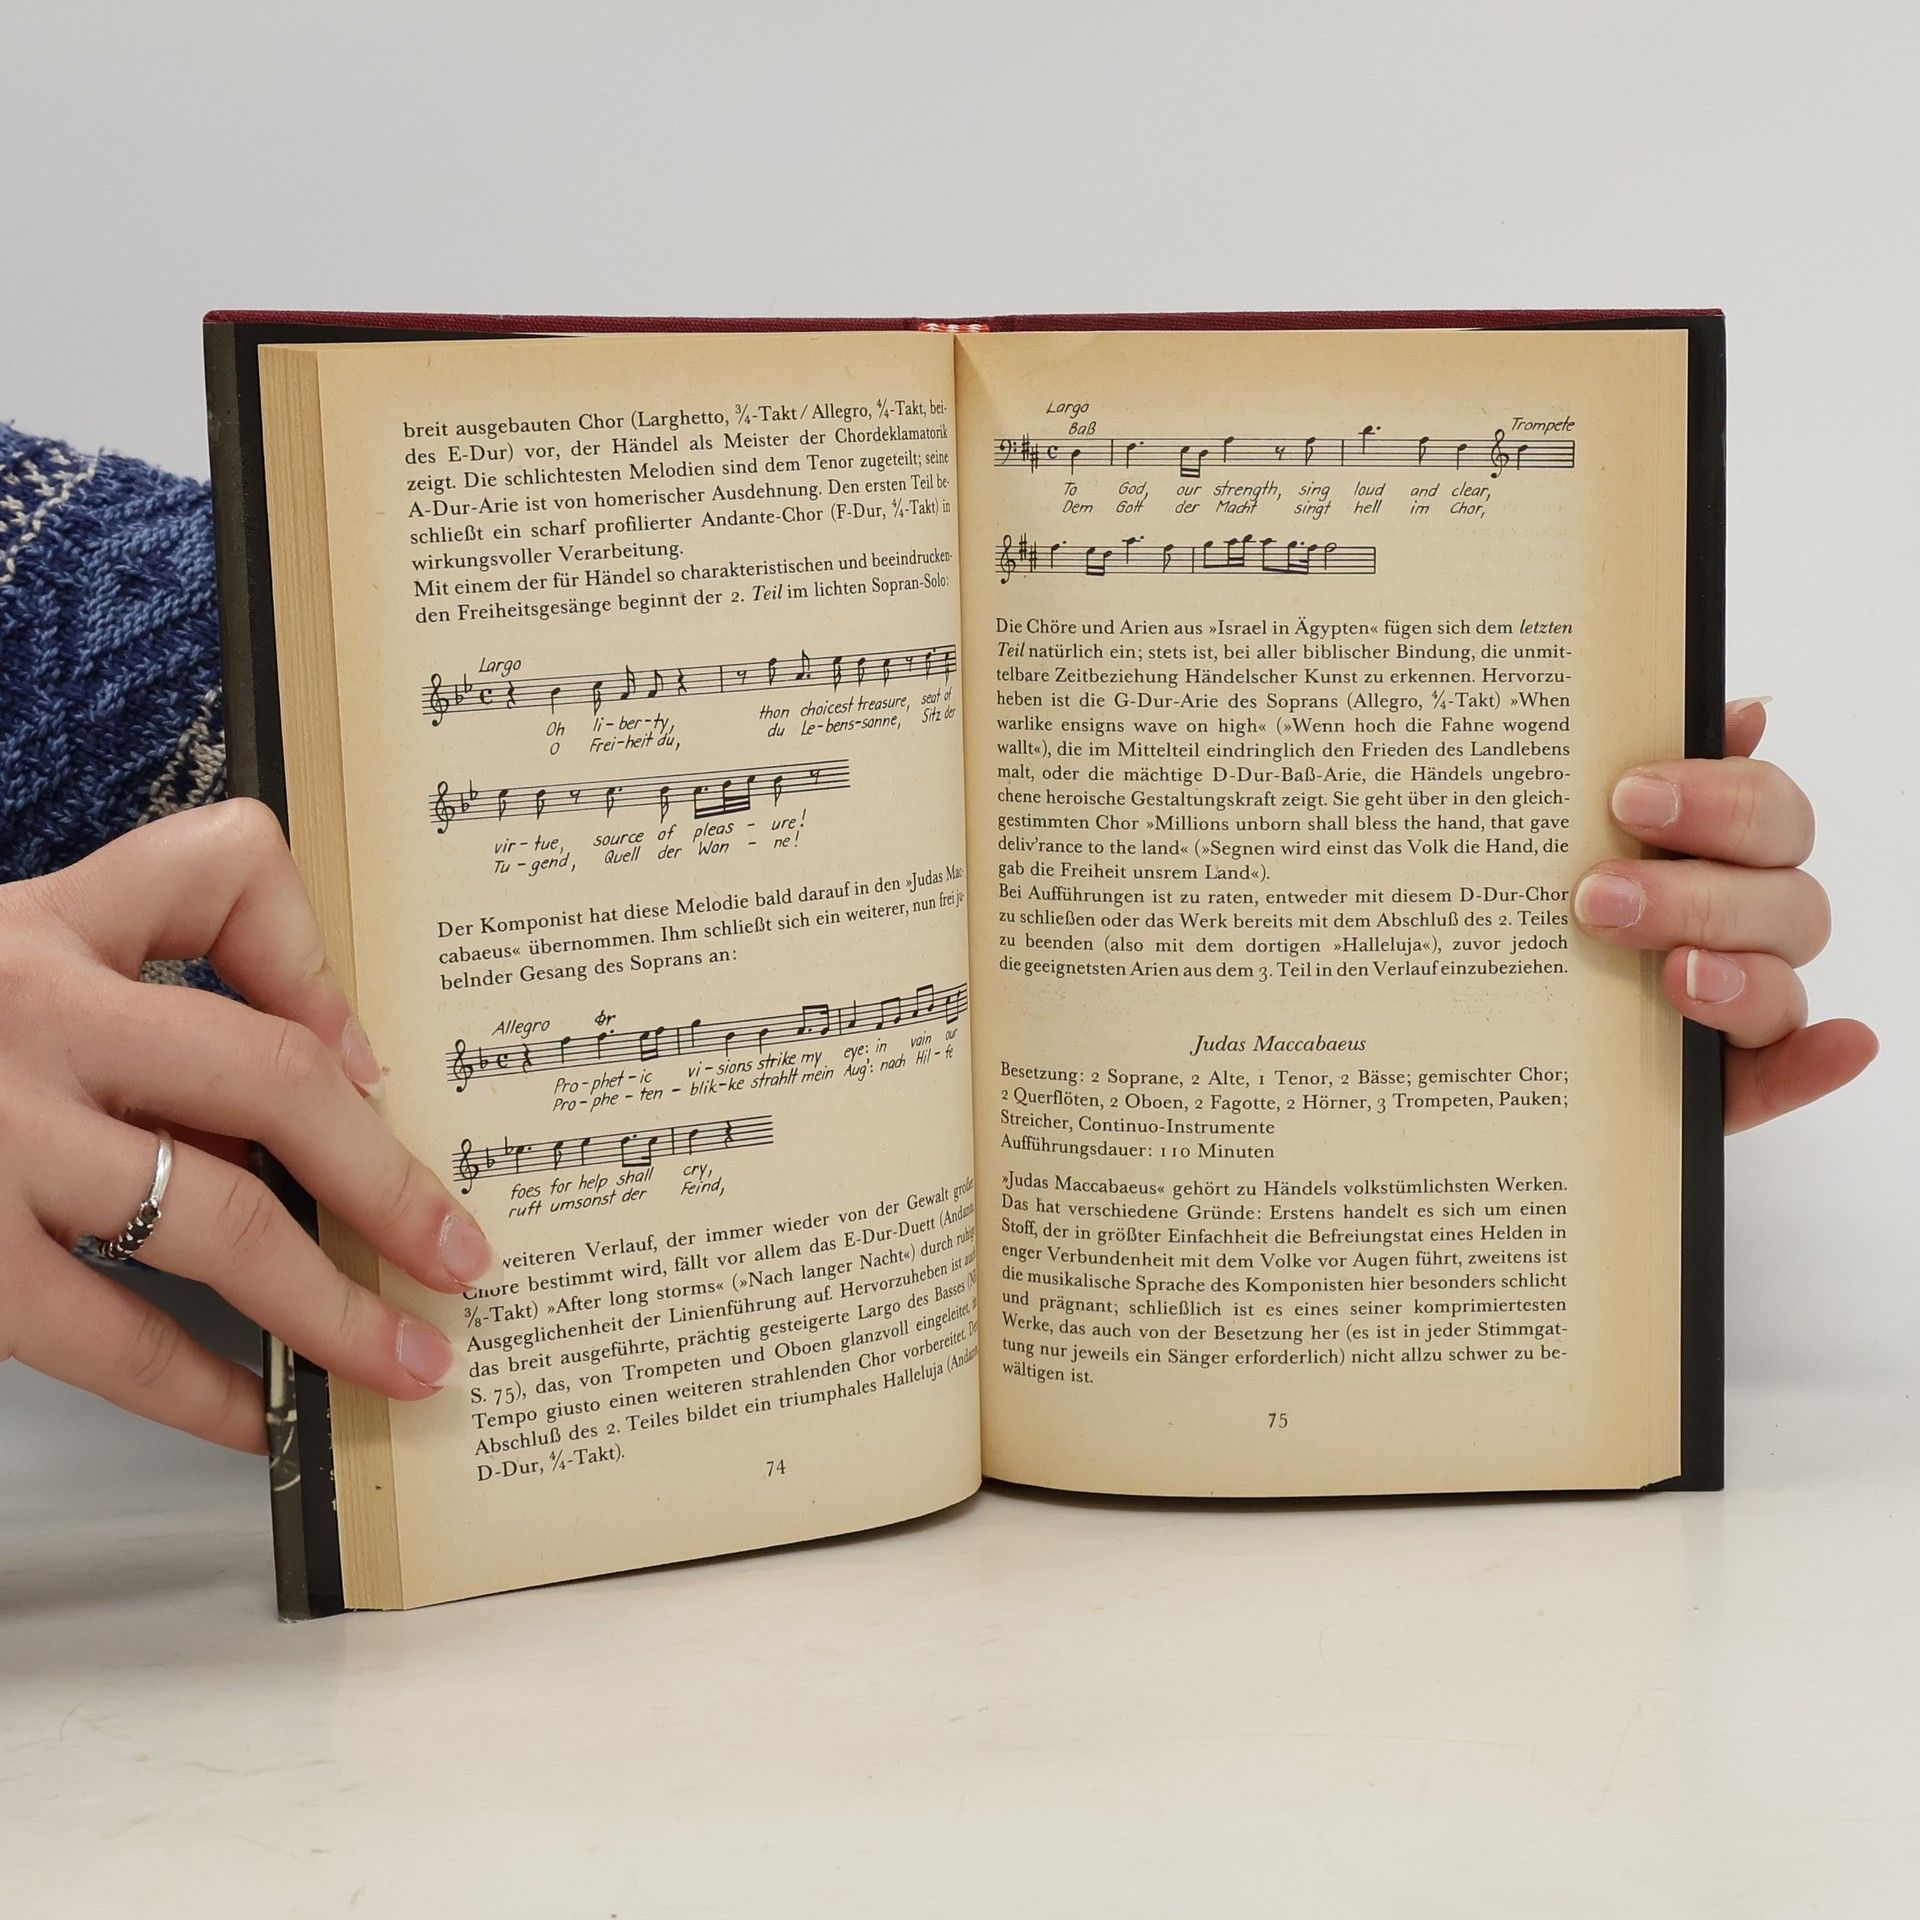 breit ausgebauten Chor (Larghetto, ¾-Takt / Allegro, 4/4-Takt, bei-
des E-Dur) vor, der Händel als Meister der Chordeklamatorik
zeigt. Die schlichtesten Melodien sind dem Tenor zugeteilt; seine
A-Dur-Arie ist von homerischer Ausdehnung. Den ersten Teil be-
schließt ein scharf profilierter Andante-Chor (F-Dur, 4/4-Takt) in
wirkungsvoller Verarbeitung.
Mit einem der für Händel so charakteristischen und beeindrucken-
den Freiheitsgesänge beginnt der 2. Teil im lichten Sopran-Solo:
Largo
Oh li-ber-ty, thon choicest treasure, seat of
O Frei-heit du, du Le-bens-sonne, Sitz der
vir-tue, source of pleas-ure!
Tu-gend, Quell der Won-ne!
Der Komponist hat diese Melodie bald darauf in den »Judas Mac-
cabaeus« übernommen. Ihm schließt sich ein weiterer, nun frei ju-
belnder Gesang des Soprans an:
Allegro tr
Pro-phet-ic vi-sions strike my eye: in vain our
Pro-phe-ten-blik-ke strahlt mein Aug': nach Hil-fe
foes for help shall cry,
ruft umsonst der Feind,
weiteren Verlauf, der immer wieder von der Gewalt großer
Chöre bestimmt wird, fällt vor allem das E-Dur-Duett (Andante,
3/8-Takt) »After long storms« (»Nach langer Nacht«) durch ruhige
Ausgeglichenheit der Linienführung auf. Hervorzuheben ist auch
das breit ausgeführte, prächtig gesteigerte Largo des Basses
S. 75), das, von Trompeten und Oboen glanzvoll eingeleitet,
Tempo giusto einen weiteren strahlenden Chor vorbereitet. Den
Abschluß des 2. Teiles bildet ein triumphales Halleluja (Andante,
D-Dur, 4/4-Takt).
74
Largo
Baß Trompete
To God, our strength, sing loud and clear,
Dem Gott der Macht singt hell im Chor,
Die Chöre und Arien aus »Israel in Ägypten« fügen sich dem letzten
Teil natürlich ein; stets ist, bei aller biblischer Bindung, die unmit-
telbare Zeitbeziehung Händelscher Kunst zu erkennen. Hervorzu-
heben ist die G-Dur-Arie des Soprans (Allegro, 4/4-Takt) »When
warlike ensigns wave on high« (»Wenn hoch die Fahne wogend
wallt«), die im Mittelteil eindringlich den Frieden des Landlebens
malt, oder die mächtige D-Dur-Baß-Arie, die Händels ungebro-
chene heroische Gestaltungskraft zeigt. Sie geht über in den gleich-
gestimmten Chor »Millions unborn shall bless the hand, that gave
deliv'rance to the land« (»Segnen wird einst das Volk die Hand, die
gab die Freiheit unsrem Land«).
Bei Aufführungen ist zu raten, entweder mit diesem D-Dur-Chor
zu schließen oder das Werk bereits mit dem Abschluß des 2. Teiles
zu beenden (also mit dem dortigen »Halleluja«), zuvor jedoch
die geeignetsten Arien aus dem 3. Teil in den Verlauf einzubeziehen.
Judas Maccabaeus
Besetzung: 2 Soprane, 2 Alte, 1 Tenor, 2 Bässe; gemischter Chor;
2 Querflöten, 2 Oboen, 2 Fagotte, 2 Hörner, 3 Trompeten, Pauken;
Streicher, Continuo-Instrumente
Aufführungsdauer: 110 Minuten
»Judas Maccabaeus« gehört zu Händels volkstümlichsten Werken.
Das hat verschiedene Gründe: Erstens handelt es sich um einen
Stoff, der in größter Einfachheit die Befreiungstat eines Helden in
enger Verbundenheit mit dem Volke vor Augen führt, zweitens ist
die musikalische Sprache des Komponisten hier besonders schlicht
und prägnant; schließlich ist es eines seiner komprimiertesten
Werke, das auch von der Besetzung her (es ist in jeder Stimmgat-
tung nur jeweils ein Sänger erforderlich) nicht allzu schwer zu be-
wältigen ist.
75